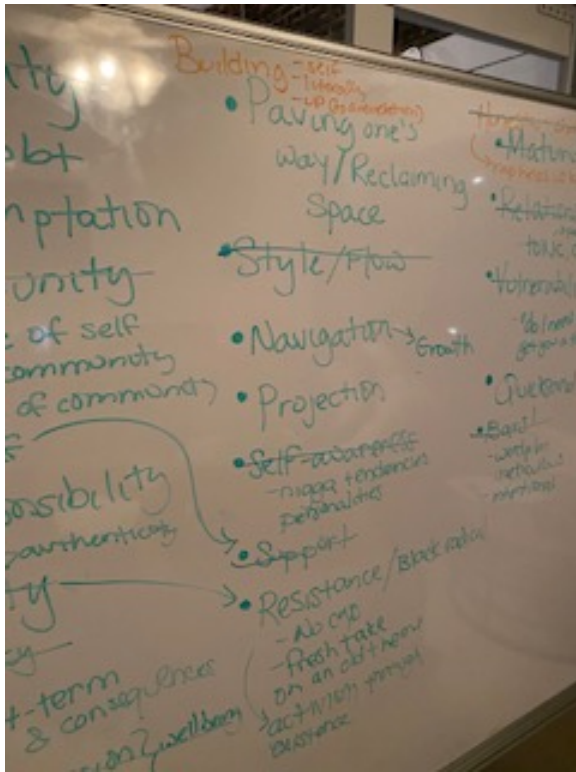 ity
obt
mptation
unity
of self
community
of community
onsibility
authenticity
ty
t-term
& consequences
wellbeing
Building - self
- literally
- up
• Paving one's
way/Reclaiming
Space
• Style/Flow
• Navigation → Growth
• Projection
• Self-awareness
- nigga tendencies
personalities
• Support
• Resistance/Black radical
- No cap
- Fresh take
on an old theme
activism
existence
• Matur
• Relation
toxic
• Vulnerabil
• Bas